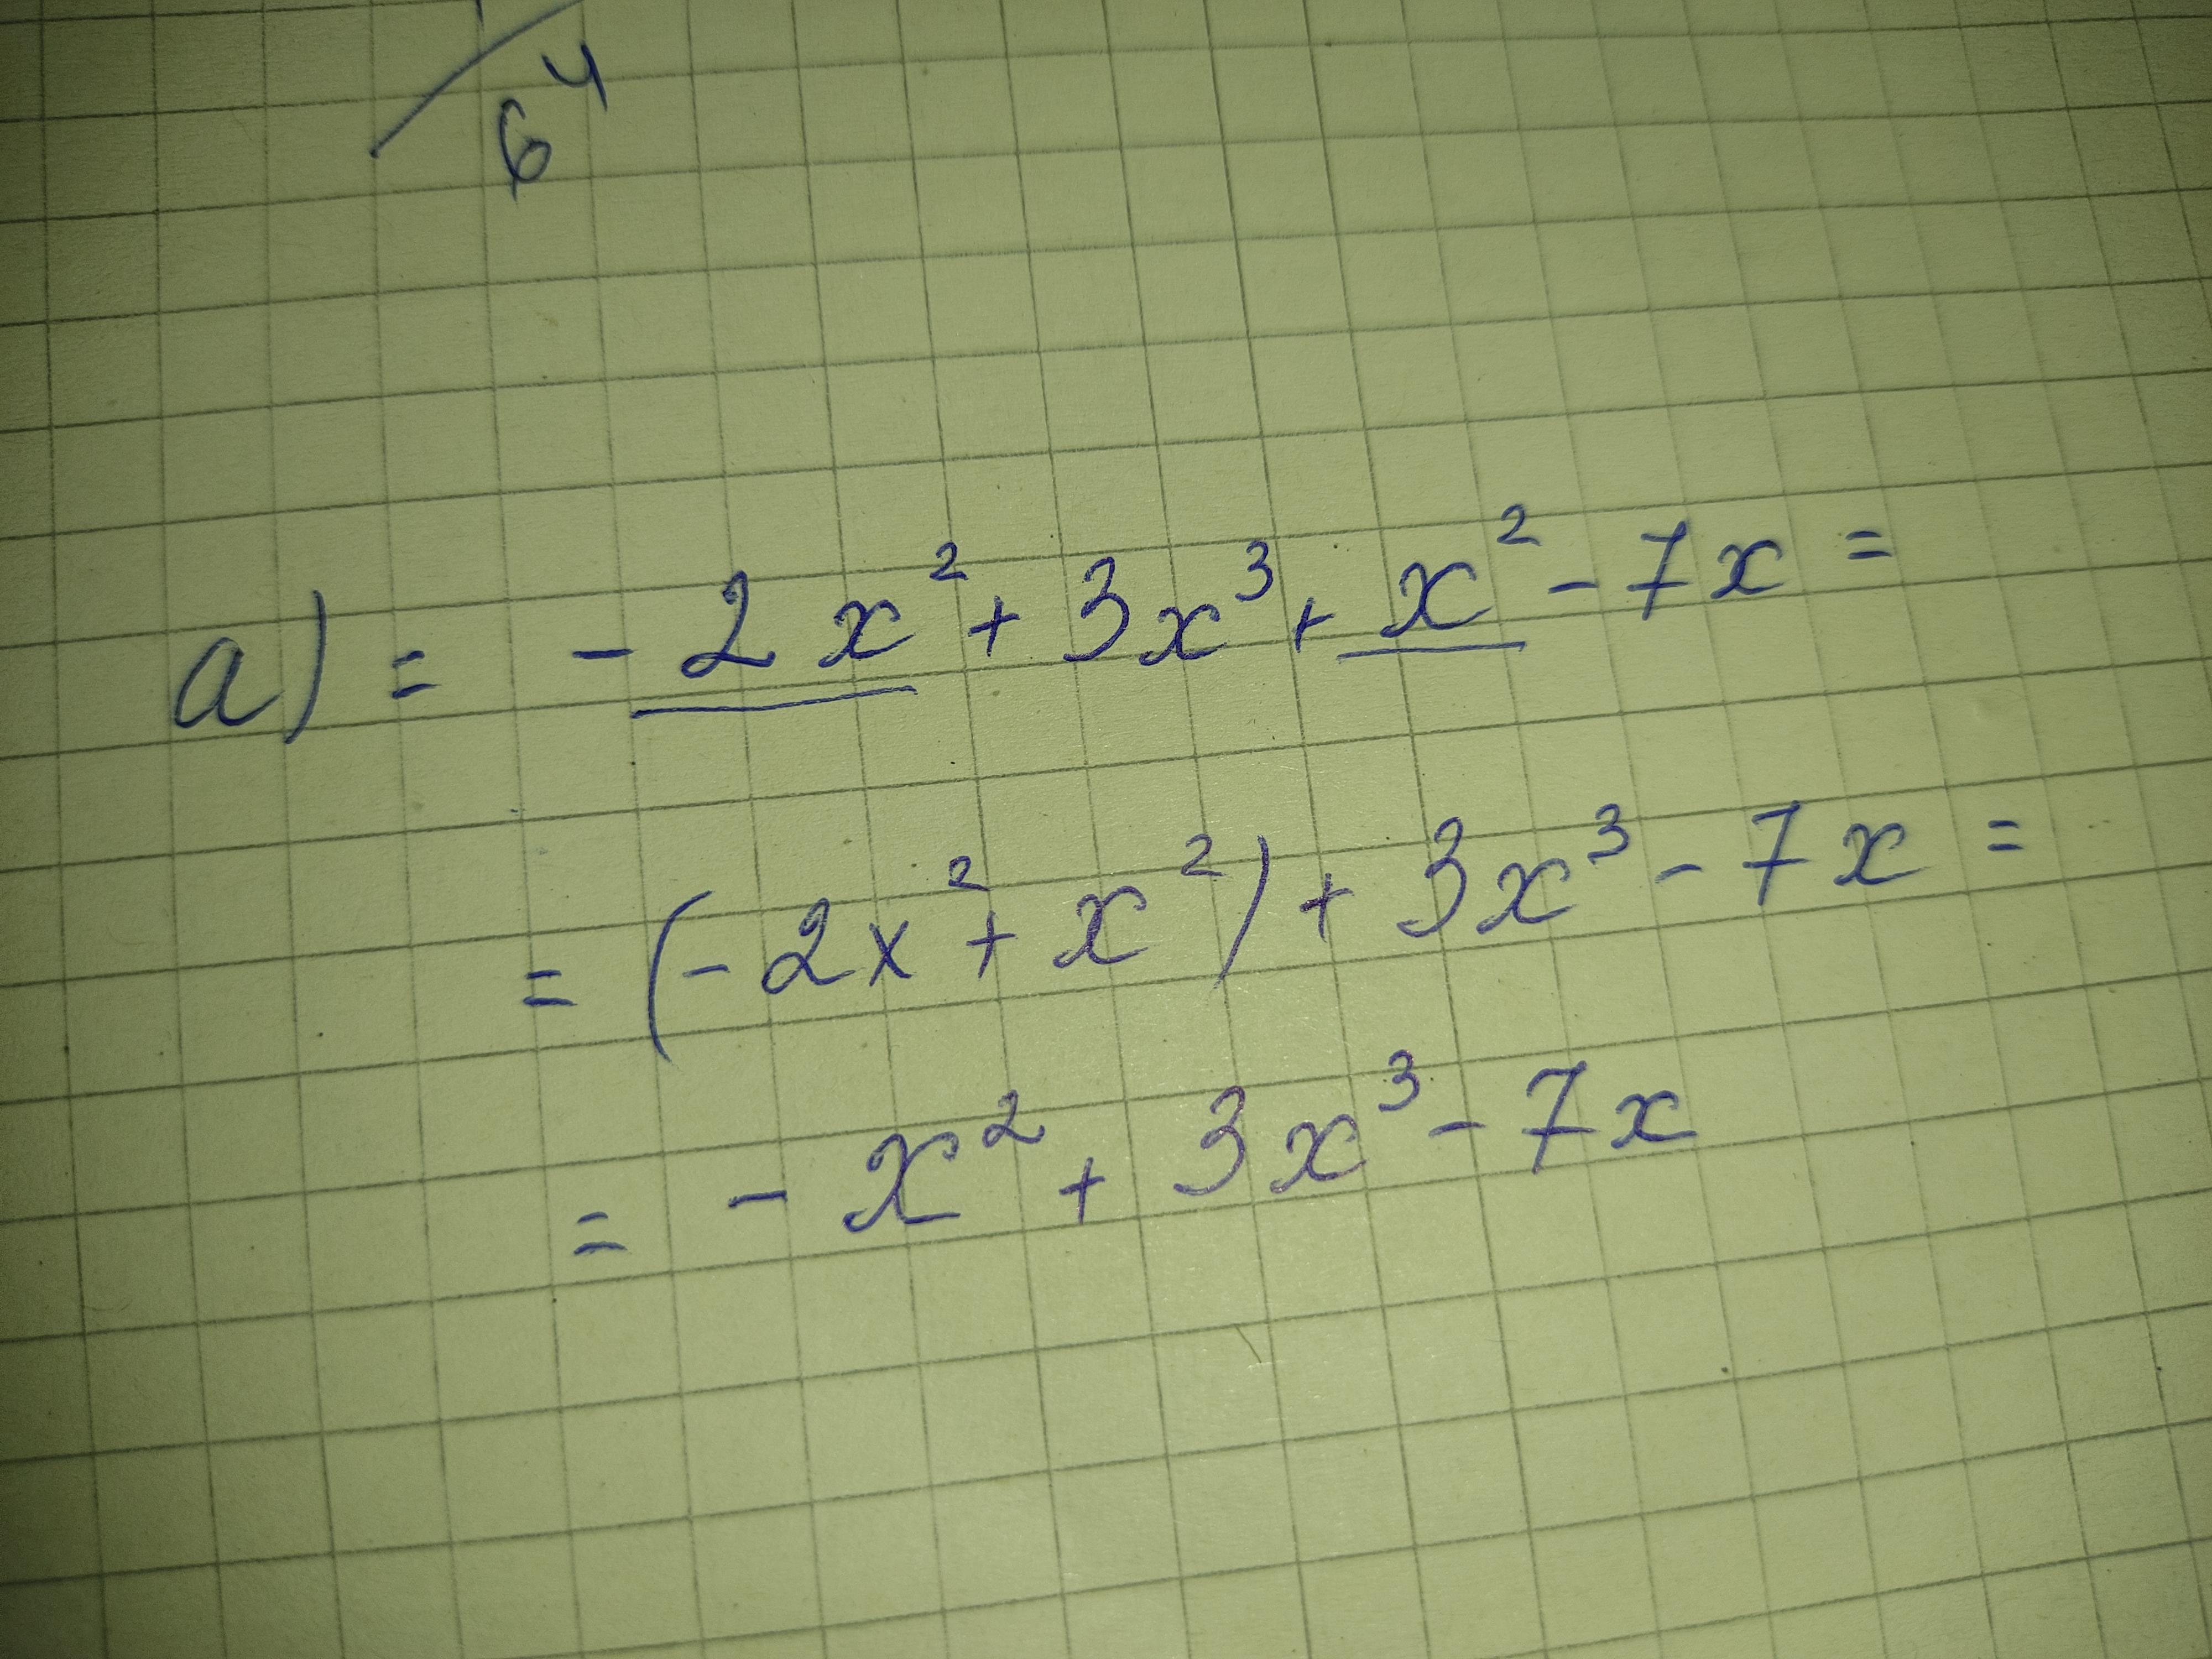 6⁴
a) = - 2x² + 3x³ + x² - 7x =
= (- 2x² + x²) + 3x³ - 7x =
= - x² + 3x³ - 7x